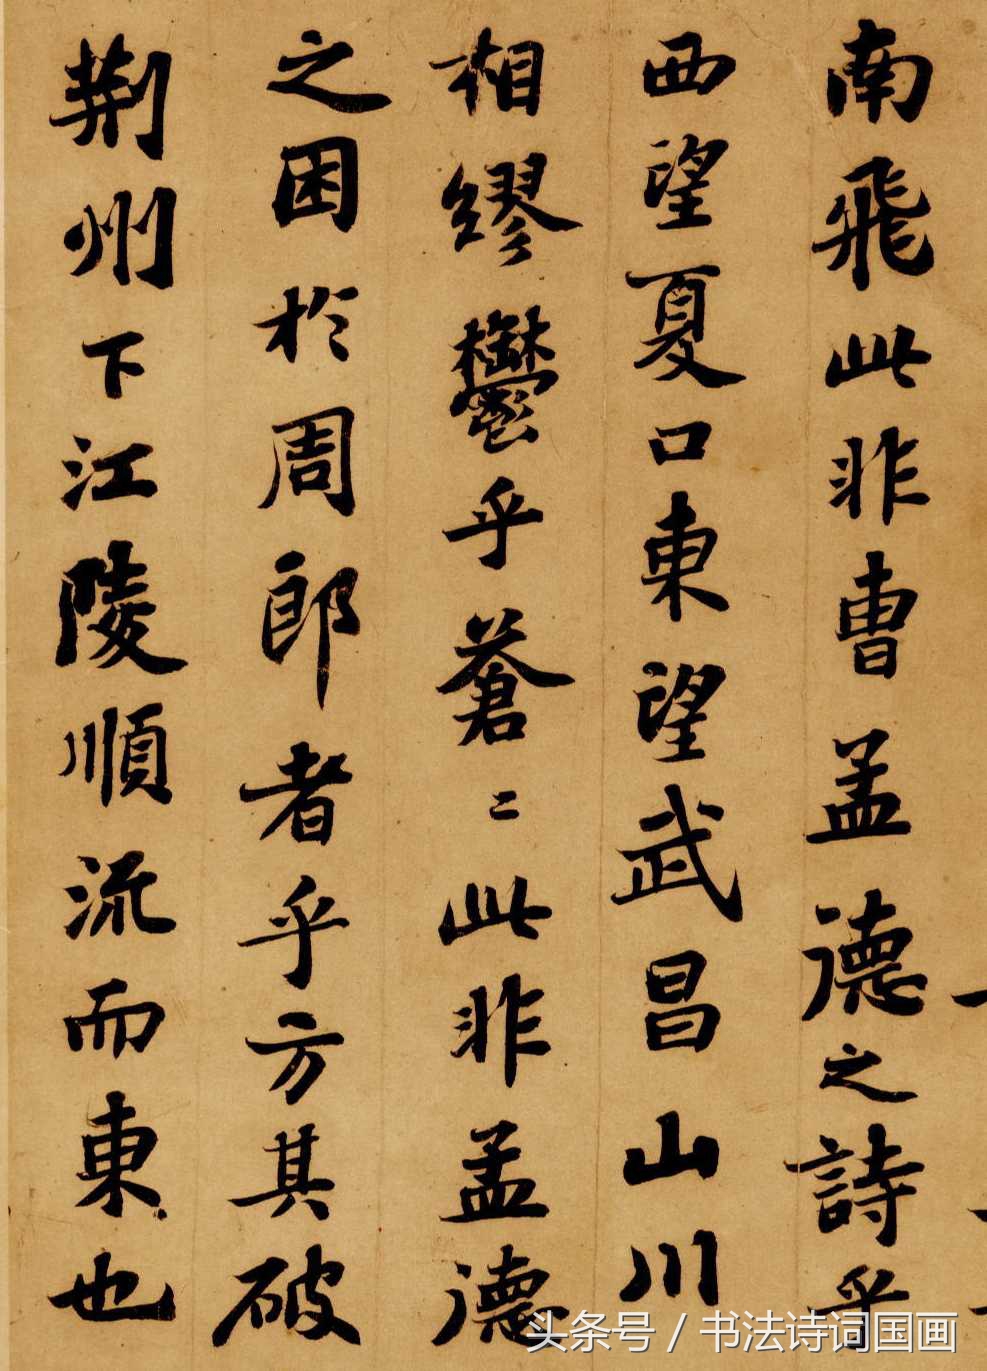 南飛此非曹孟德之詩乎
西望夏口東望武昌山川
相繆鬱乎蒼〻此非孟德
之困於周郎者乎方其破
荆州下江陵順流而東也
头条号 / 书法诗词国画